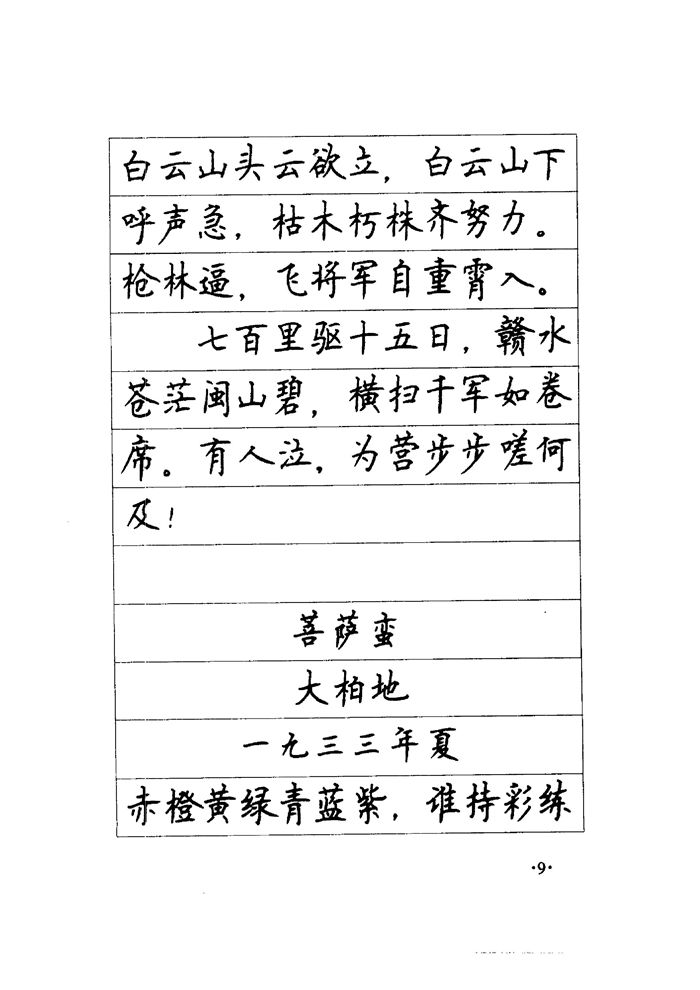 白云山头云欲立，白云山下
呼声急，枯木朽株齐努力。
枪林逼，飞将军自重霄入。
七百里驱十五日，赣水
苍茫闽山碧，横扫千军如卷
席。有人泣，为营步步嗟何
及！
菩萨蛮
大柏地
一九三三年夏
赤橙黄绿青蓝紫，谁持彩练
·9·